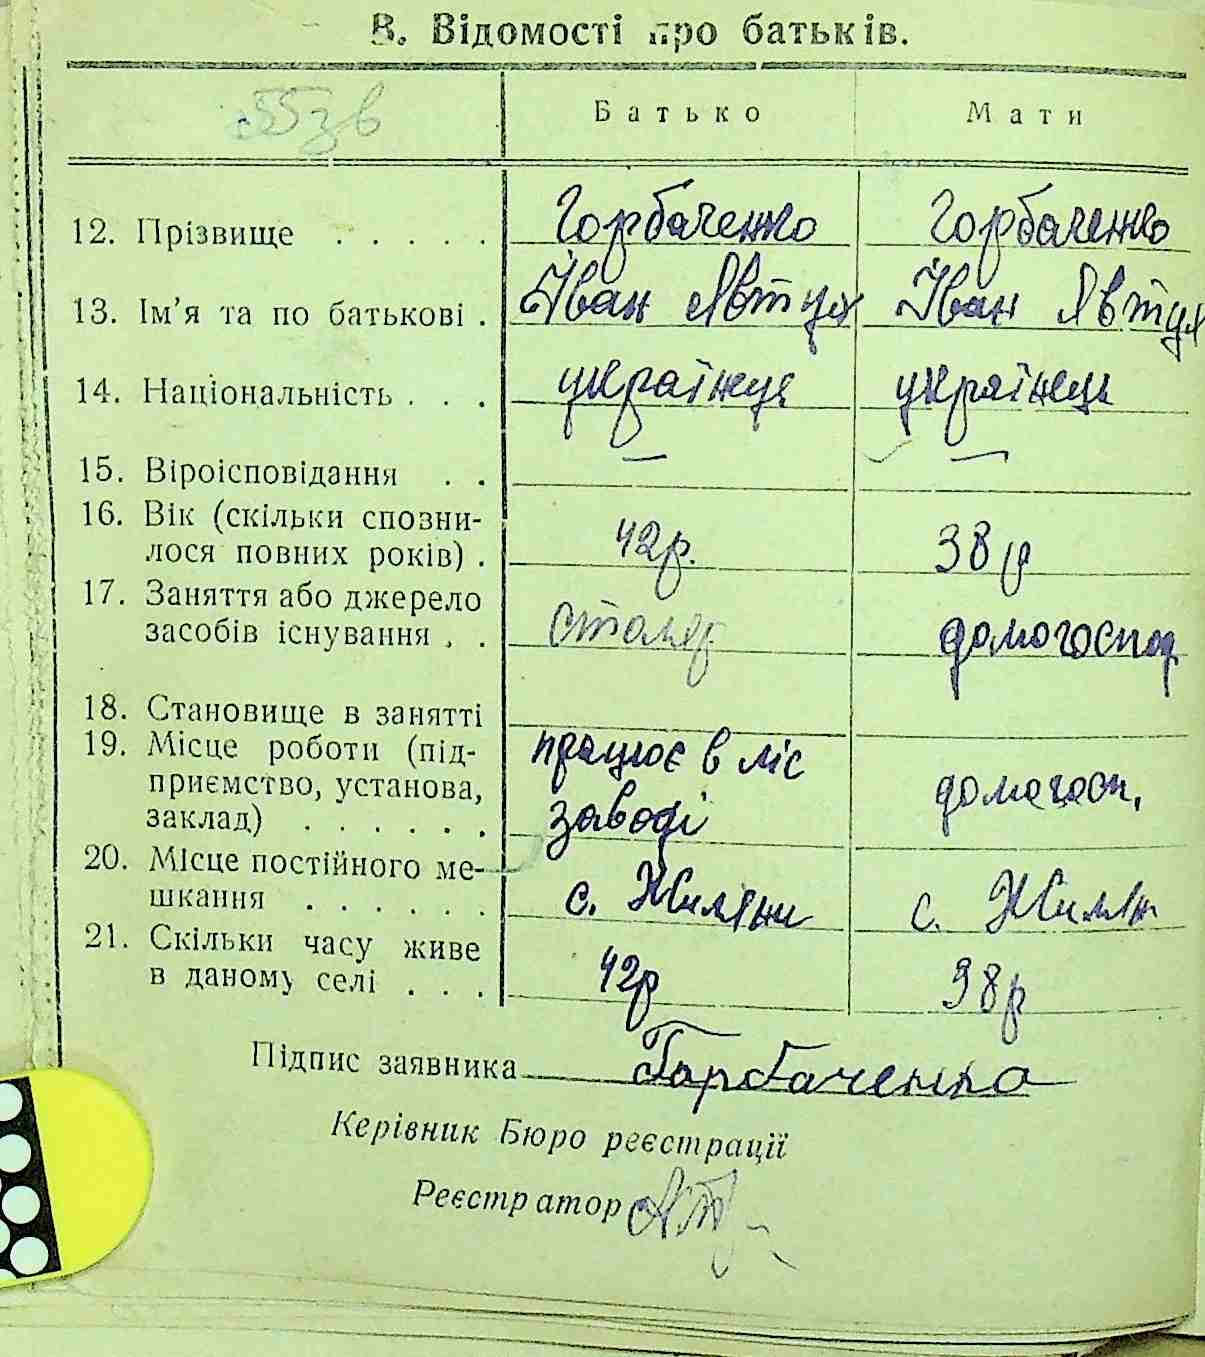 В. Відомості про батьків.
Батько Мати
12. Прізвище . . . . . Горбаченко Горбаченко
13. Ім'я та по батькові . Іван Явтух Іван Явтух
14. Національність . . . українець українець
15. Віроісповідання . . — —
16. Вік (скільки сповни-
лося повних років) . 42р. 38р
17. Заняття або джерело
засобів існування . . столяр домогоспод
18. Становище в занятті
19. Місце роботи (під- працює в ліс
приємство, установа, домогосп.
заклад) . . . . . . заводі
20. Місце постійного ме-
шкання . . . . . . с. Жиляни с. Жилян
21. Скільки часу живе
в даному селі . . . 42р 38р
Підпис заявника Горбаченко
Керівник Бюро реєстрації
Реєстратор